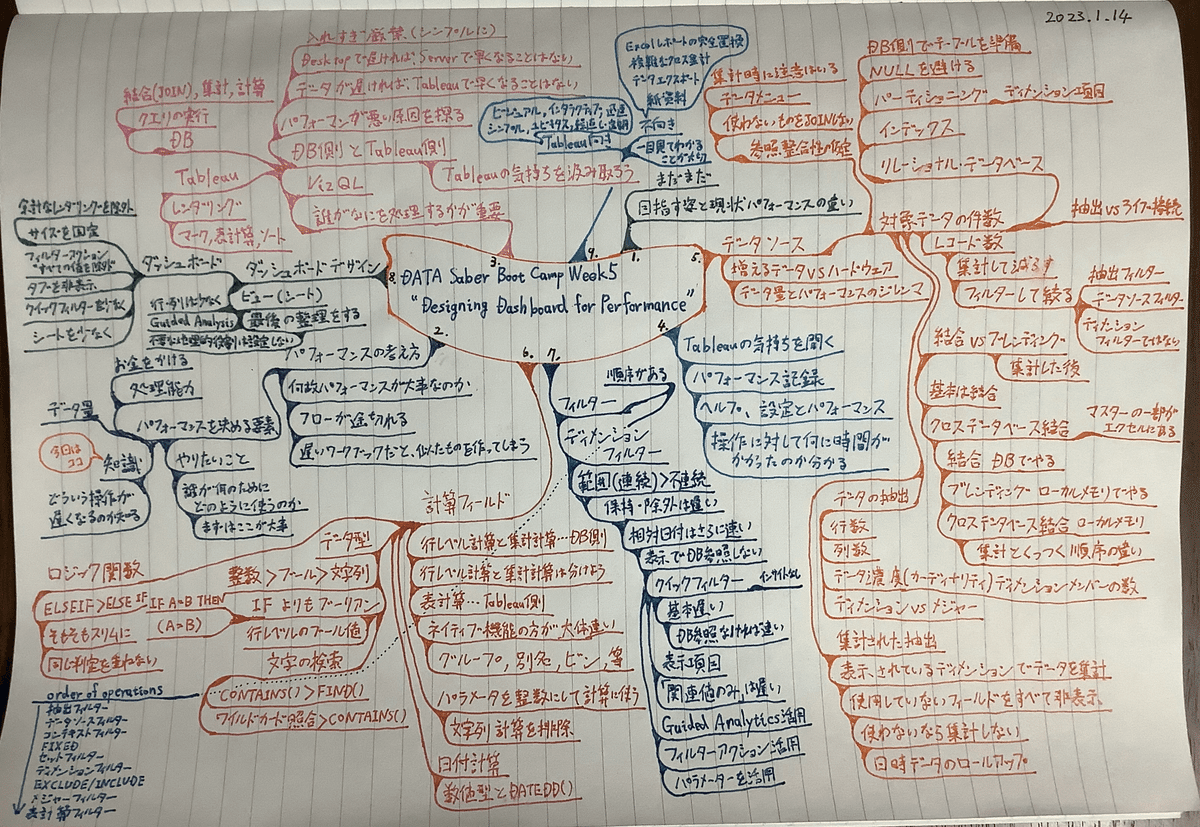 2023.1.14
DATA Saber Boot Camp Week5
"Designing Dashboard for Performance"
1.
目指す姿と現状パフォーマンスの違い
まだまだ
2.
パフォーマンスの考え方
何故パフォーマンスが大事なのか
フローが途切れる
遅いワークブックだと、似たものを作ってしまう
パフォーマンスを決める要素
お金をかける
処理能力
データ量
知識
今日は
ココ
どういう操作が
遅くなるのか知る
やりたいこと
誰が何のために
どのように使うのか
まずはここが大事
3.
入れすぎ厳禁(シンプルに)
Desktopで遅ければ、Serverで早くなることはない
データが遅ければ、Tableauで早くなることはない
パフォーマンスが悪い原因を探る
DB側とTableau側
Tableauの気持ちを汲み取ろう
VizQL
誰がなにを処理するかが重要
結合(JOIN), 集計, 計算
クエリの実行
DB
Tableau
レンダリング
マーク, 表計算, ソート
4.
Tableauの気持ちを聞く
パフォーマンス記録
ヘルプ、設定とパフォーマンス
操作に対して何に時間が
かかったのか分かる
5.
データソース
増えるデータVSハードウェア
データ量とパフォーマンスのジレンマ
集計時に注意はいる
データメニュー
使わないものをJOINしない
参照整合性の仮定
DB側でテーブルを準備
NULLを避ける
パーティショニング
ディメンション項目
インデックス
リレーショナル・データベース
対象データの件数
抽出VSライブ接続
レコード数
集計して減らす
フィルターして絞る
抽出フィルター
データソースフィルター
ディメンション
フィルターではない
結合VSブレンディング
集計した後
基本は結合
クロスデータベース結合
マスターの一部が
エクセルに有る
結合 DBでやる
ブレンディング ローカルメモリでやる
クロスデータベース結合 ローカルメモリ
集計とくっつく順序の違い
データの抽出
行数
列数
データ濃度(カーディナリティ)ディメンションメンバーの数
ディメンションvsメジャー
集計された抽出
表示されているディメンションでデータを集計
使用していないフィールドをすべて非表示
使わないなら集計しない
日時データのロールアップ
6.
計算フィールド
行レベル計算と集計計算…DB側
行レベル計算と集計計算は分けよう
表計算…Tableau側
ネイティブ機能の方が大体速い
グループ, 別名, ビン, 等
パラメータを整数にして計算に使う
文字列計算を排除
日付計算
数値型とDATEADD()
データ型
整数>ブール>文字列
ロジック関数
ELSEIF>ELSE IF
そもそもスリムに
同じ判定を重ねない
IFよりもブーリアン
IF A=B THEN
(A=B)
行レベルのブール値
文字の検索
CONTAINS()>FIND()
ワイルドカード照合>CONTAINS()
7.
フィルター
順序がある
ディメンション
フィルター
範囲(連続)>不連続
保持・除外は遅い
相対日付はさらに速い
表示でDB参照しない
クイックフィルター
インサイトなし
基本遅い
DB参照なければ速い
表示項目
「関連値のみ」は遅い
Guided Analytics活用
フィルターアクション活用
パラメーターを活用
8.
ダッシュボードデザイン
ダッシュボード
余計なレンダリングを除外
サイズを固定
フィルターアクション
"すべての値を除外"
タブを非表示
クイックフィルターを少なく
シートを少なく
ビュー(シート)
行・列は少なく
Guided Analysis
不要な地理的役割は設定しない
最後の整理をする
9.
Tableau向き
ビジュアル, インタラクティブ, 迅速
シンプル, ユビキタス
不向き
Excelレポートの完全置換
複雑なクロス集計
データエクスポート
紙資料
一目見てわかる
ことが大切
order of operations
抽出フィルター
データソースフィルター
コンテキストフィルター
FIXED
セットフィルター
ディメンションフィルター
EXCLUDE/INCLUDE
メジャーフィルター
表計算フィルター